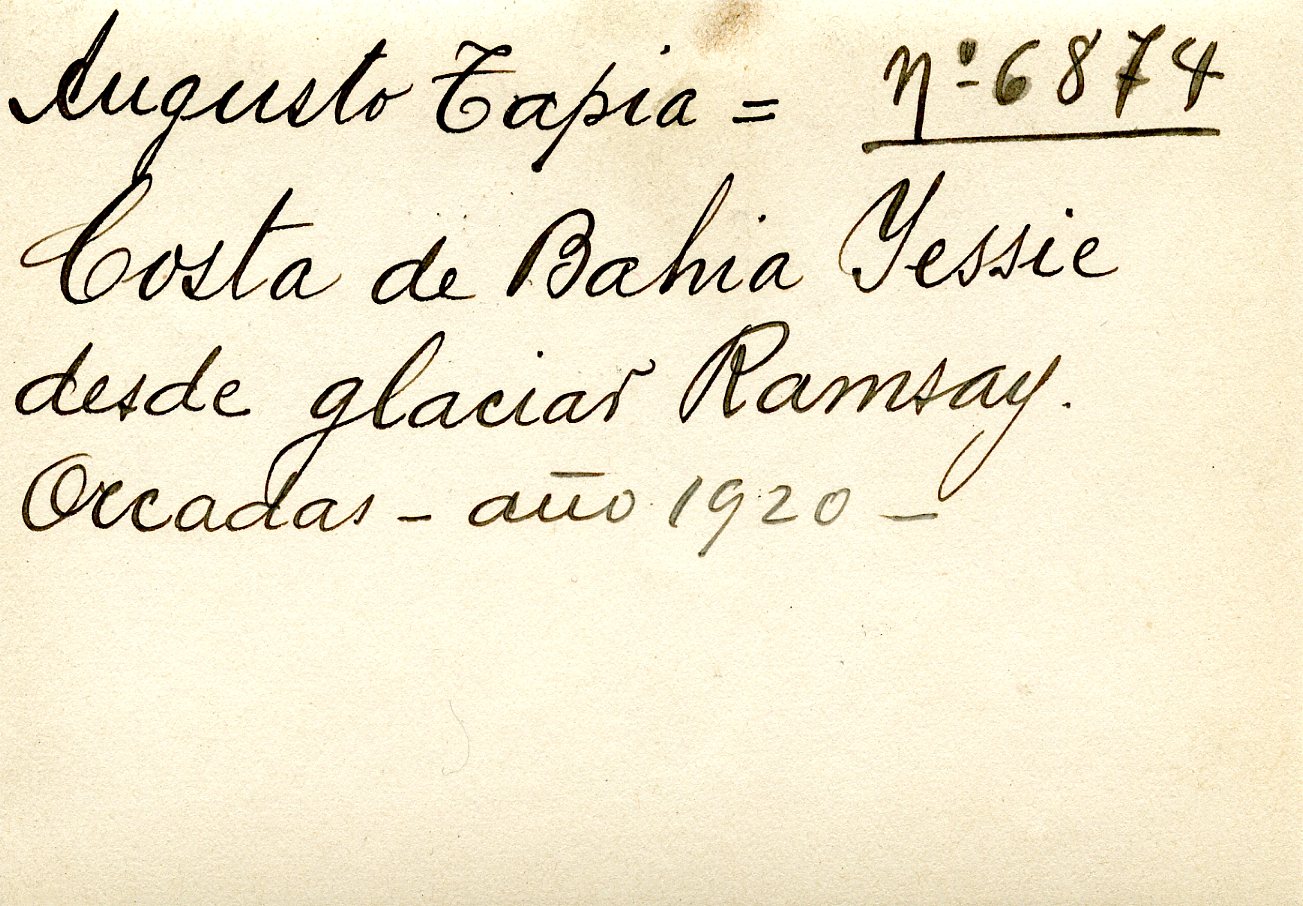 Augusto Tapia = nº 6874
Costa de Bahia Yessie
desde glaciar Ramsay.
Orcadas - año 1920 -